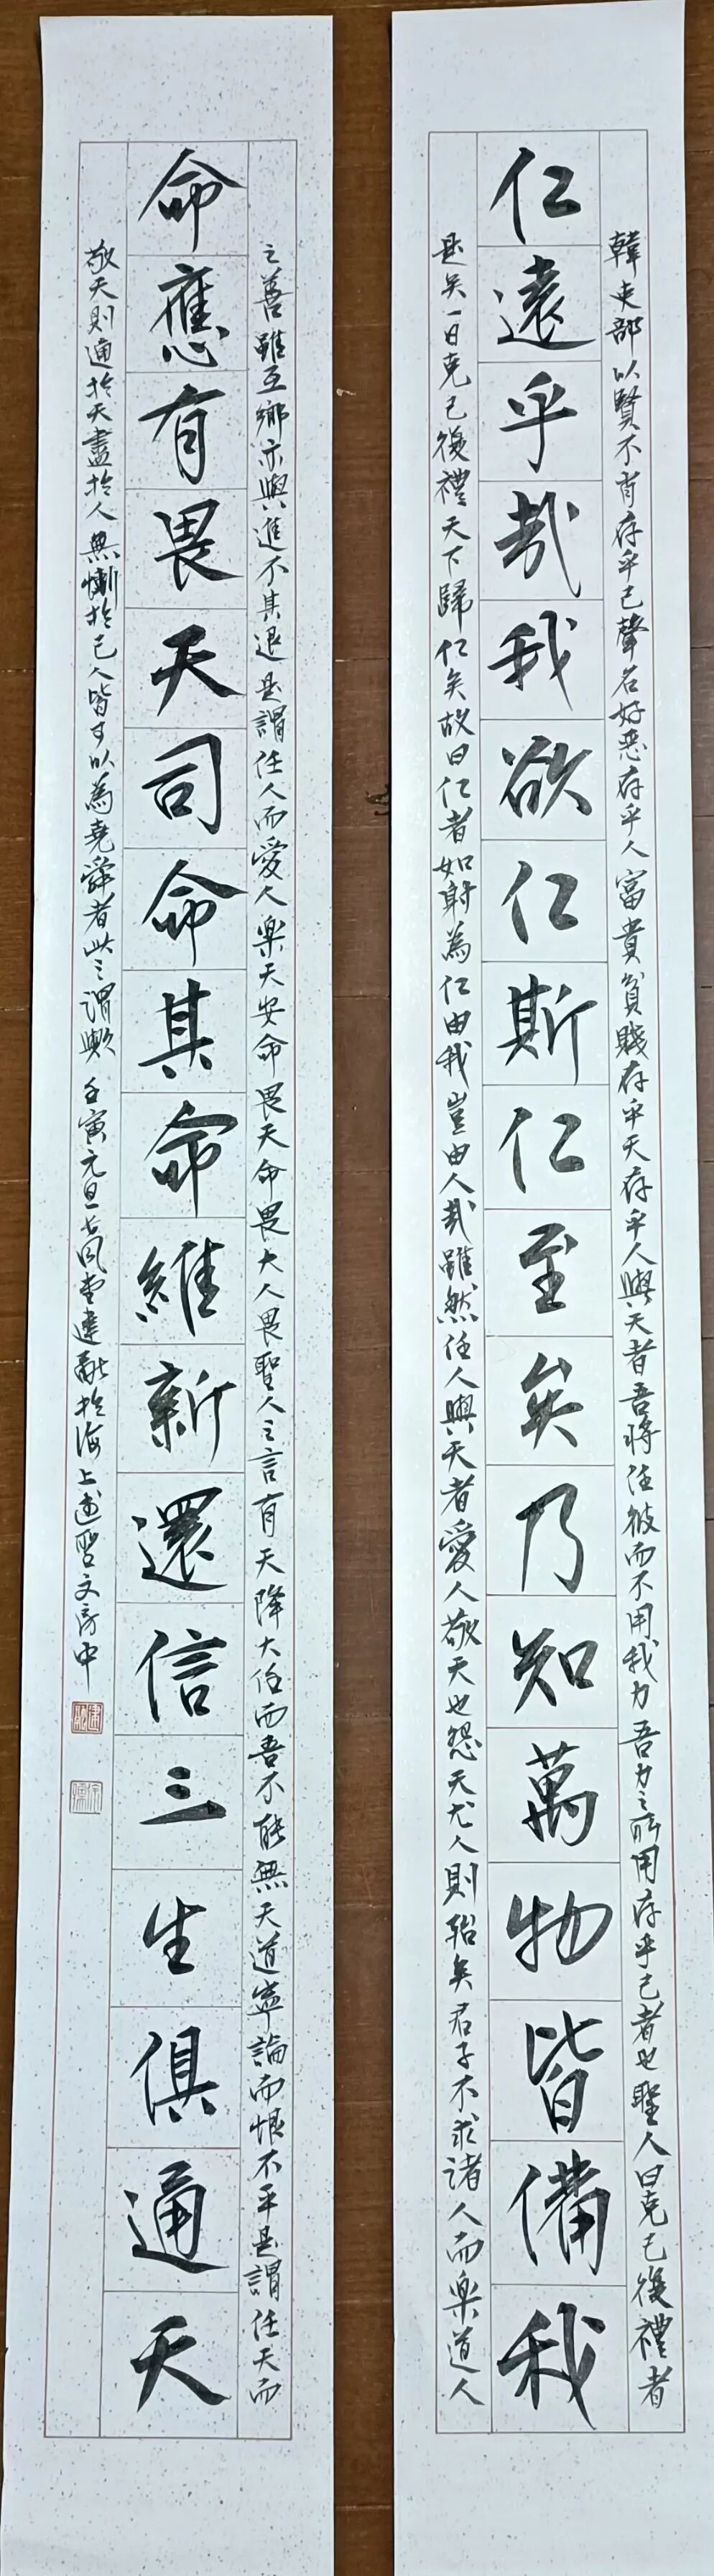 仁遠乎哉我欲仁斯仁至矣乃知萬物皆備我
韓吏部以賢不肖存乎己聲名好惡存乎人富貴貧賤存乎天存乎人與天者吾將任彼而不用我力吾力之所用存乎己者也聖人曰克己復禮者
是矣一日克己復禮天下歸仁矣故曰仁者如射為仁由我豈由人哉雖然任人與天者愛人敬天也怨天尤人則殆矣君子不求諸人而樂道人
命應有畏天司命其命維新還信三生俱通天
之善雖互鄉亦與進不其退是謂任人而愛人樂天安命畏天命畏大人畏聖人之言有天降大任而吾不能無天道寧論而恨不平是謂任天而
敬天則通於天盡於人無慚於己人皆可以為堯舜者此之謂歟 壬寅元旦 建融於海上 文房中